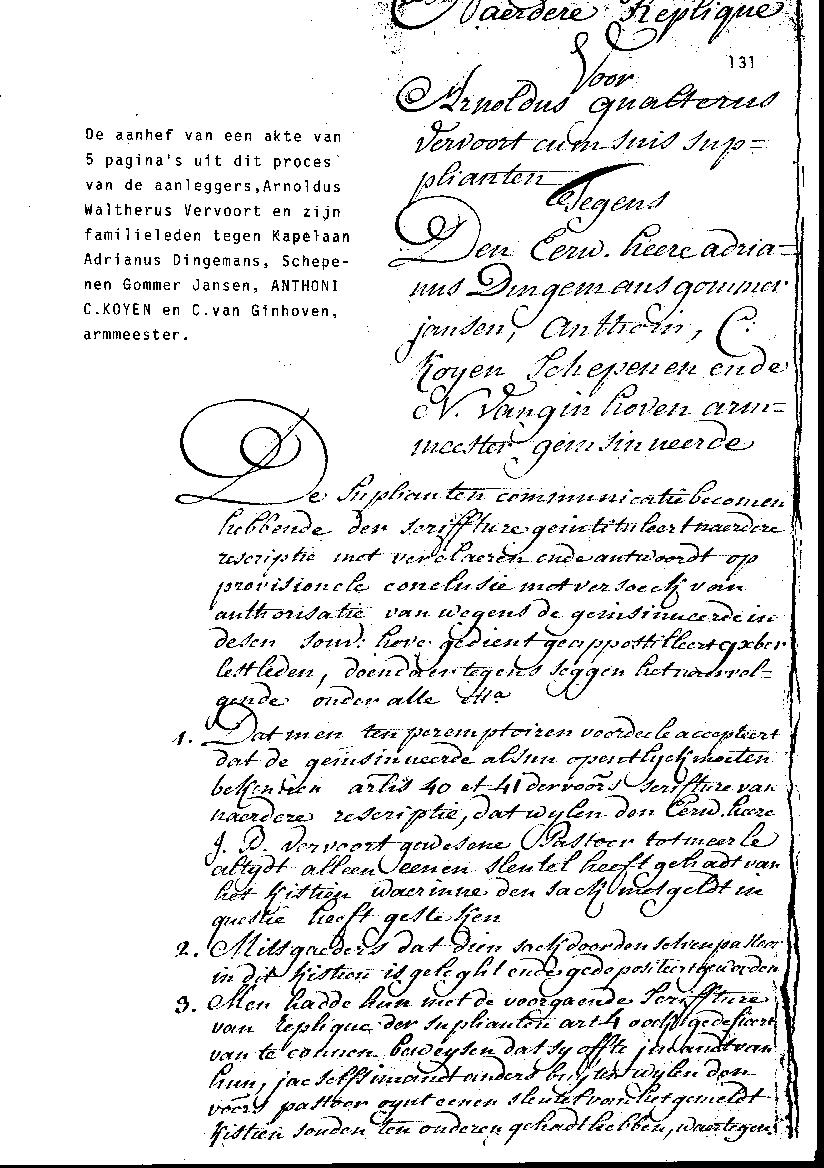 Naerdere Replique
131
Voor
Arnoldus gualterus
vervoort cum suis sup=
plianten
Tegens
Den Eerw. heere adria=
nus Dingemans gommer
jansen, Anthoin, C:
Koyen Schepenen ende
N. Vanginhoven arm=
meester geinsinueerde
De aanhef van een akte van
5 pagina's uit dit proces
van de aanleggers,Arnoldus
Waltherus Vervoort en zijn
familieleden tegen Kapelaan
Adrianus Dingemans, Schepe-
nen Gommer Jansen, ANTHONI
C.KOYEN en C.van Ginhoven,
armmeester.
De Suplianten communicatie becomen
hebbende der scriffture geintituleert naerdere
rescriptie met verclaeren ende antwoordt op
provisionele conclusie met versoeck van
authorisatie van wegens de geinsinueerde in
desen souv: hove gedient geappostilleert
lestleden, doende tegens seggen het naervol=
gende onder alle
1. Dat men ten peremptoiren voordeele accepteert
dat de geinsinueerde alsnu opentlyck moeten
bekennen artlis 40 et 41 der voors scrifture van
naerdere rescriptie, dat wylen den Eerw. heere
J. B. Vervoort gewesene Pastoor tot meerle
altydt alleen eenen sleutel heeft gehadt van
het kistien waerinne den sack met geldt in
questie heeft gesteken
2. Mitsgaeders dat dien sack door den selven pastoor
in dit kistien is geleght ende gedeposieert geworden
3. Men hadde hun met de voorgaende Scriffture
van replique der suplianten art 4 oock gedefieert
van te connen bewysen dat sy offte jmandt van
hun, jae selfs imandt anders buyten wylen den
voors pastoor oynt eenen sleutel van het gemeldt
kistien souden ten onderen gehadt hebben, waertegens